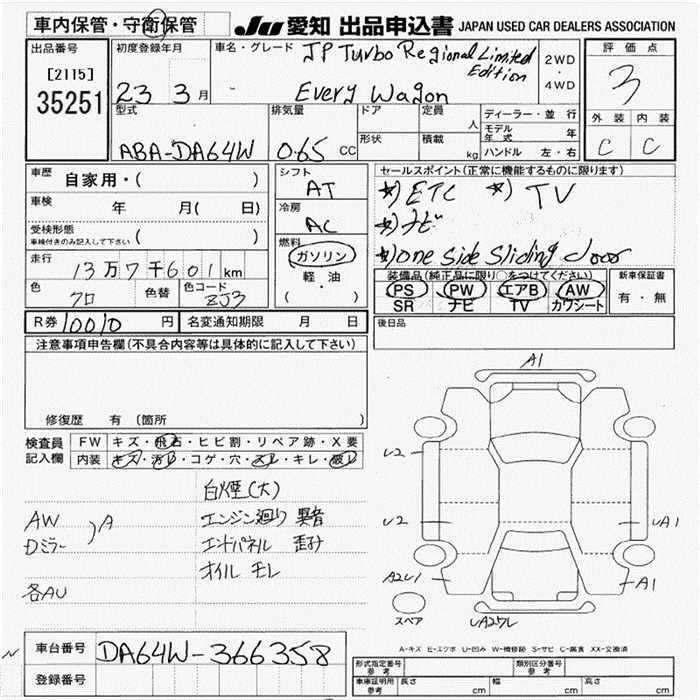 車内保管・守衛保管
JU 愛知 出品申込書 JAPAN USED CAR DEALERS ASSOCIATION
出品番号
[2115]
35251
初度登録年月
23 3 月
車名・グレード JP Turbo Regional Limited
Edition
Every Wagon
2WD
・
4WD
評価点
3
外装 内装
C C
型式
ABA-DA64W
排気量
0.65 CC
ドア
形状
定員
人
積載
kg
ディーラー・並行
モデル年式 年
ハンドル 左・右
車歴 自家用・( )
車検 年 月( 日)
受検形態
車検付きのみ記入して下さい ( )
走行
13万7千601km
色
クロ
色替
色コード
ZJ3
シフト
AT
冷房
AC
燃料
ガソリン
・
軽・油
( )
セールスポイント(正常に機能するものに限ります)
*) ETC *) TV
*) ナビ
*) one side sliding door
装備品(純正品に限り○をつけてください)
PS PW エアB AW
SR ナビ TV カワシート
新車保証書
有・無
R券 10010 円
名変通知期限 月 日
後日品
注意事項申告欄(不具合内容等は具体的に記入して下さい)
修復歴 有 (箇所 )
検査員
記入欄
FW キズ・飛石・ヒビ割・リペア跡・X要
内装 キズ・汚レ・コゲ・穴・スレ・キレ・破レ
白煙(大)
エンジン廻り 異音
エンドパネル 歪み
オイル モレ
AW
Dミラー
) A
各AU
A1
U2
U2
UA1
A2U1
A1
UA25L
スペア
A-キズ E-エクボ U-凹み W-補修跡 S-サビ C-腐食 XX-交換済
車台番号 DA64W-366358
登録番号
N
形式指定番号
参考
類別区分番号
参考
車庫証明用
参考
長さ cm 幅 cm 高さ cm